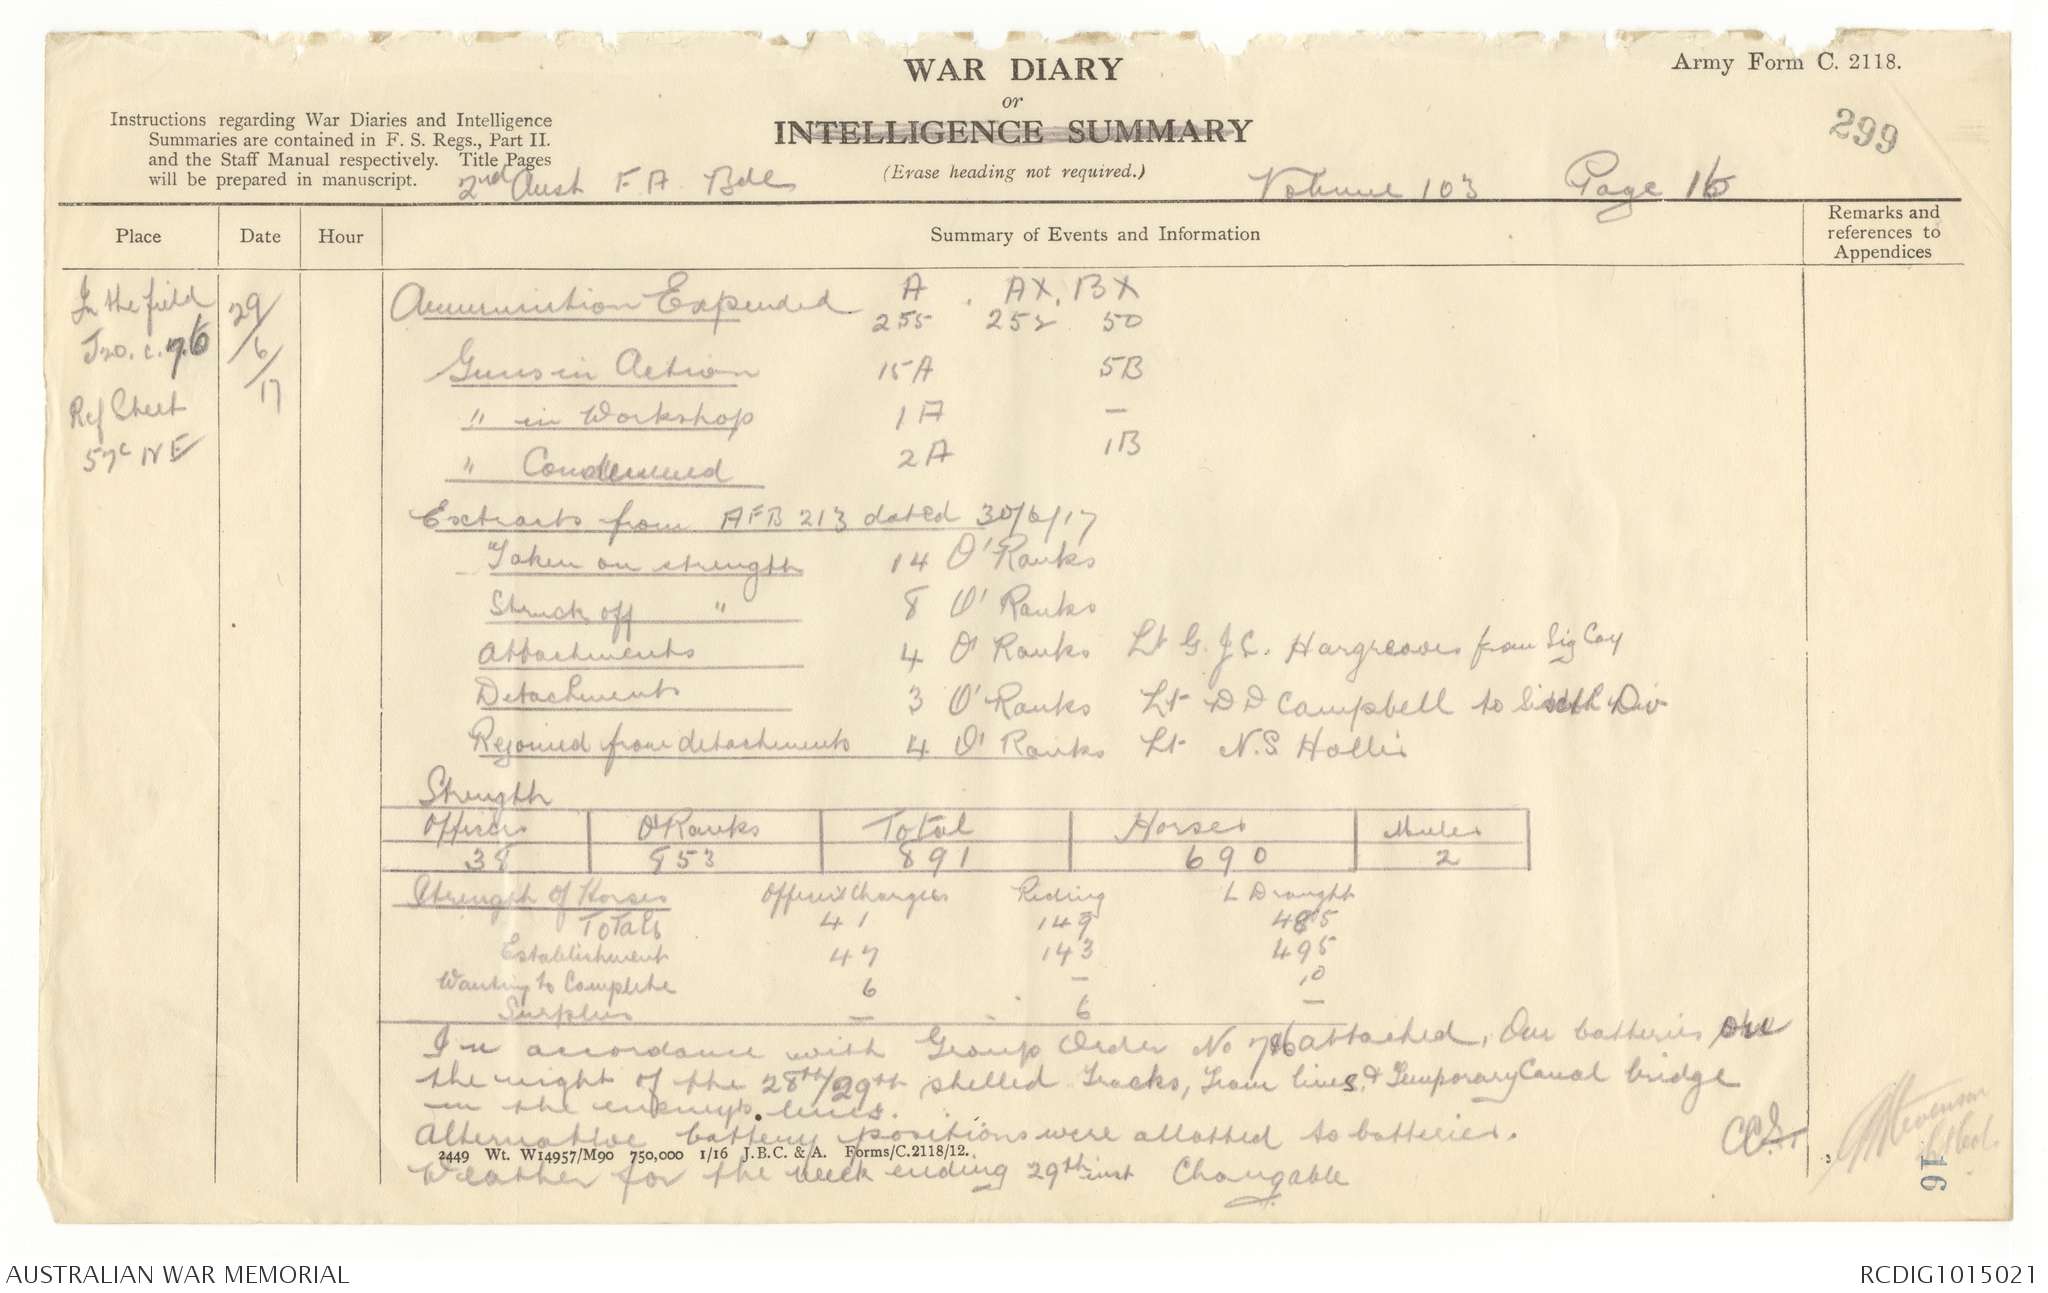 WAR DIARY
or
INTELLIGENCE SUMMARY
(Erase heading not required.)
Army Form C. 2118.
299
Instructions regarding War Diaries and Intelligence
Summaries are contained in F. S. Regs., Part II.
and the Staff Manual respectively. Title Pages
will be prepared in manuscript.
2nd Aust F. A. Bde Volume 103 Page 16
Place Date Hour Summary of Events and Information Remarks and references to Appendices
In the field 29/6/17
J20. c. 7.6
Ref Sheet
57c NE
A . AX. BX
Ammunition Expended 255 252 50
Guns in Action 15A 5B
" in Workshop 1A —
" Condemned 2A 1B
Extracts from AFB 213 dated 30/6/17
Taken on strength 14 O' Ranks
Struck off " 8 O' Ranks
Attachments 4 O' Ranks Lt G. J. C. Hargreaves from Sig Coy
Detachments 3 O' Ranks Lt D D Campbell to Sixth Div
Rejoined from detachments 4 O' Ranks Lt N. S Hollis
Strength
Officers O'Ranks Total Horses Mules
38 853 891 690 2
Strength of Horses Officers Chargers Riding L Draught
Totals 41 149 485
Establishment 47 143 495
Wanting to Complete 6 — 10
Surplus — 6 —
In accordance with Group Order No 76 attached, Our batteries on
the night of the 28th/29th shelled Tracks, Tram lines & Temporary Canal bridge
in the enemy's lines.
Alternative battery positions were allotted to batteries.
2449 Wt. W14957/M90 750,000 1/16 J.B.C. & A. Forms/C.2118/12.
Weather for the week ending 29th inst Changable
Stevenson
Lt Col.
91
AUSTRALIAN WAR MEMORIAL
RCDIG1015021